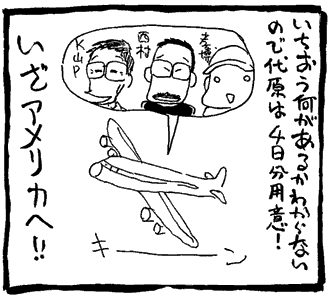 いちおう何があるかわからない
ので代原は4日分用意!
西村
K山P
いざアメリカへ!!
キーーン